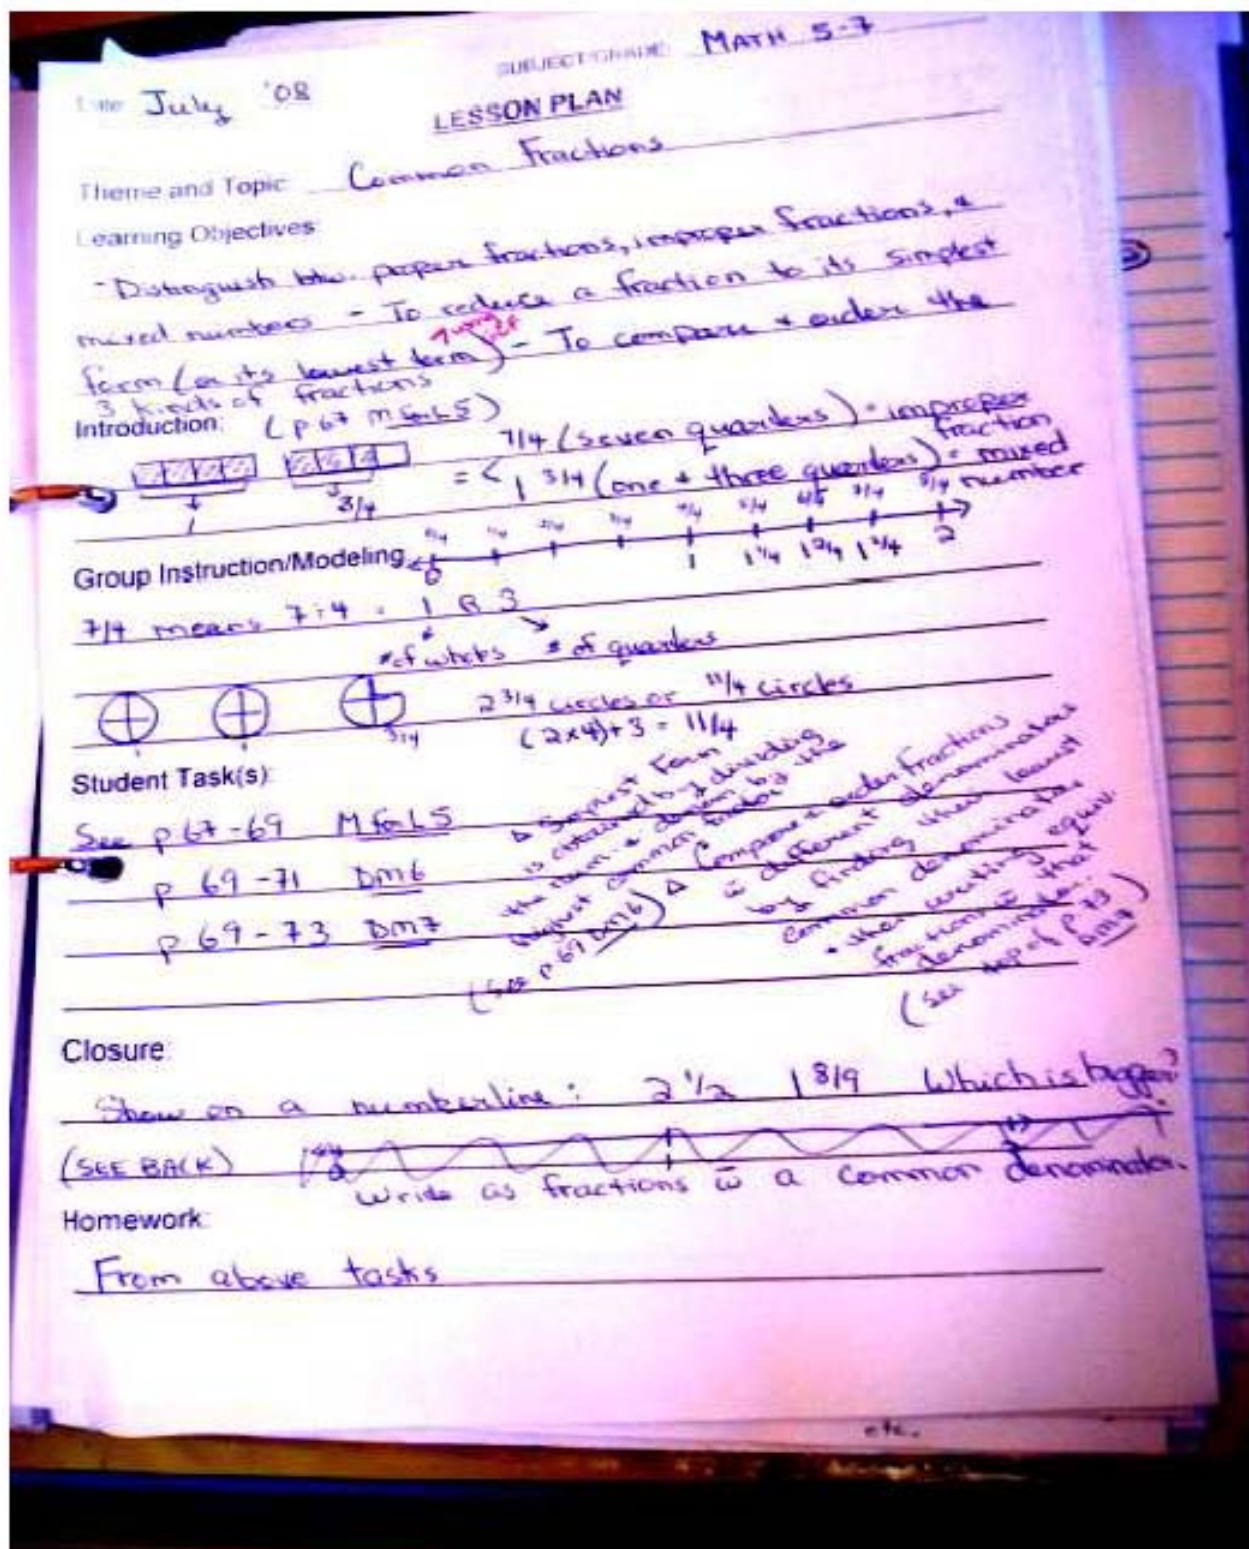 SUBJECT/GRADE: MATH 5-7
Date July '08
LESSON PLAN
Theme and Topic Common Fractions
Learning Objectives:
- Distinguish btw. proper fractions, improper fractions, &
mixed numbers - To reduce a fraction to its simplest
form (or its lowest term) - To compare & order the
3 kinds of fractions
Introduction: (p 67 MfaL5)
7/4 (seven quarters) = improper
fraction
= < 1 3/4 (one & three quarters) = mixed
number
1 3/4
0/4 1/4 2/4 3/4 4/4 5/4 6/5 7/4 8/4
Group Instruction/Modeling
0 1 1 1/4 1 2/4 1 3/4 2
7/4 means 7÷4 = 1 R 3
# of wholes # of quarters
2 3/4 circles or 11/4 circles
1 1 3/4 (2x4)+3 = 11/4
Student Task(s):
See p 67-69 MfaL5
p 69-71 DM6
p 69-73 DM7
Δ Simplest Form
is obtained by dividing
the num & denom by the
highest common factor
(See p 69 DM6)
Δ Compare & order fractions
w̄ different denominators
by finding their least
common denominator
& then writing equiv.
fractions w̄ that
denominator.
(See top of p 73
DM7)
Closure:
Show on a numberline: 2 1/2 1 8/9 Which is bigger?
(SEE BACK)
Write as fractions w̄ a common denominator.
Homework:
From above tasks
etc.